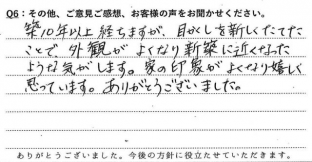 Q6：その他、ご意見ご感想、お客様の声をお聞かせください。
築10年以上経ちますが、目かくしを新しくたてた
ことで、外観がよくなり新築に近くなった
ような気がします。家の印象がよくなり嬉しく
思っています。ありがとうございました。
ありがとうございました。今後の方針に役立たせていただきます。